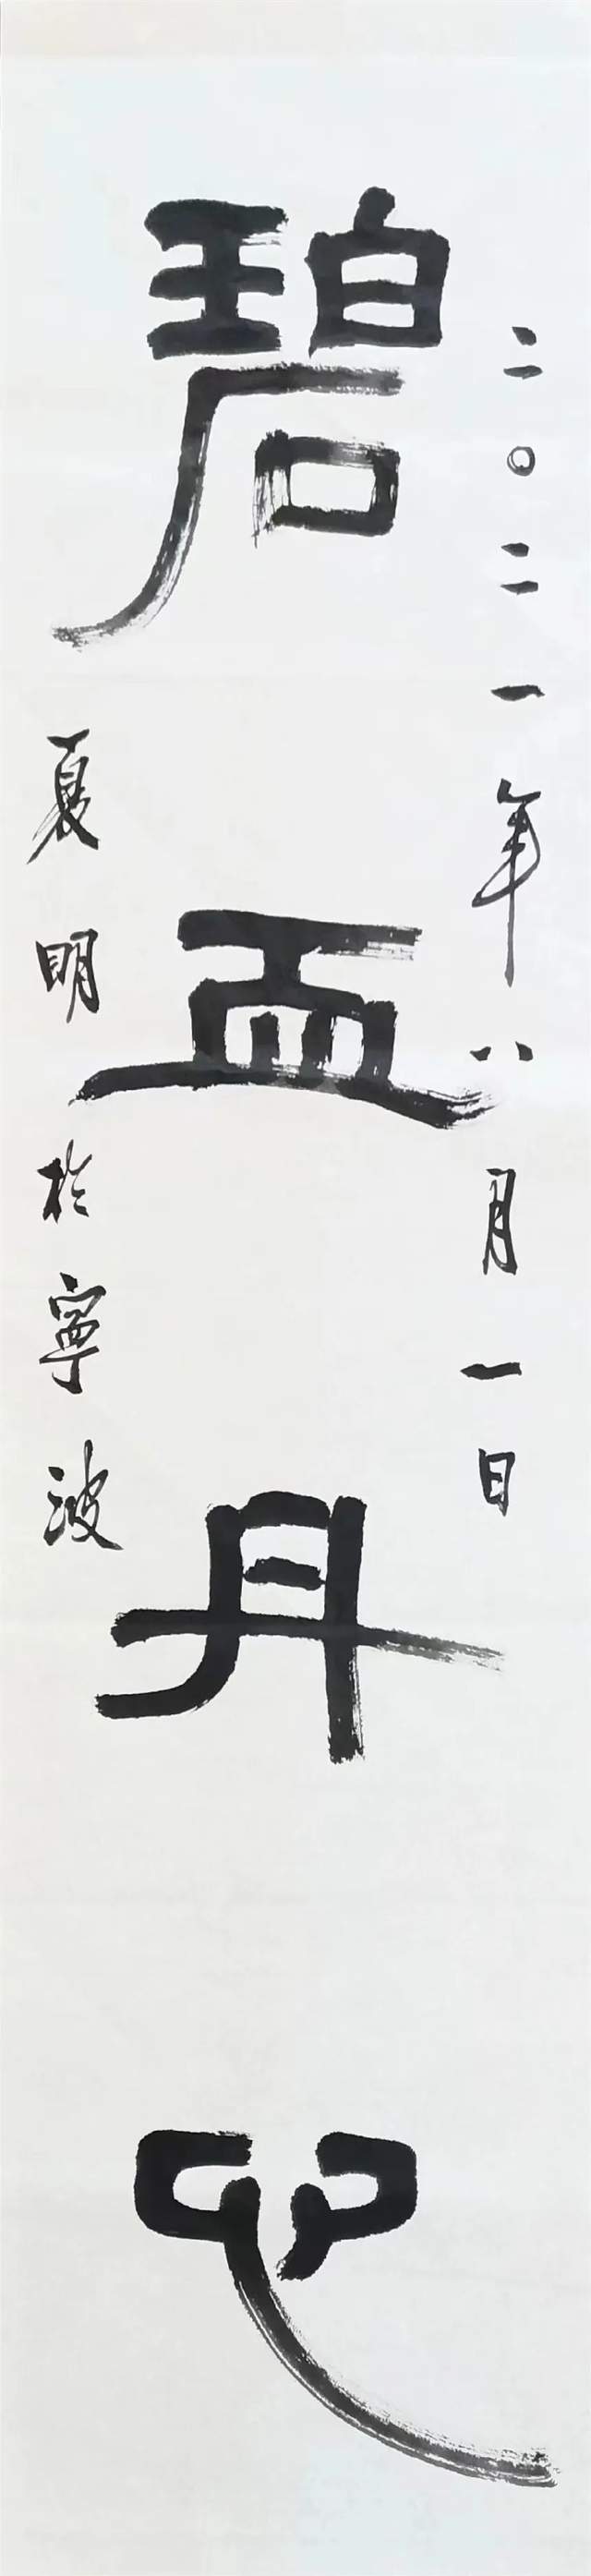 二〇二一年八月一日
碧血丹心
夏明於寧波